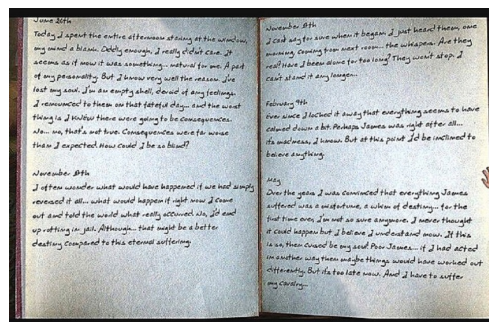 June 26th
Today I spent the entire afternoon staring at the window,
my mind a blank. Oddly enough, I really didn't care. It
seems as if now it was something... natural for me. A part
of my personality. But I know very well the reason. I've
lost my soul. I'm an empty shell, devoid of any feelings.
I renounced to them on that fateful day... and the worst
thing is I KNEW there were going to be consequences.
No... no, that's not true. Consequences were far worse
than I expected. How could I be so blind?
November 18th
I often wonder what would have happened if we had simply
reversed it all... what would happen if right now I came
out and told the world what really occurred. No, I'd end
up rotting in jail. Although... that might be a better
destiny compared to this eternal suffering.
November 19th
I can't say for sure when it began. I just heard them, one
morning, coming from next room... the whispers. Are they
real? Have I been alone for too long? They won't stop. I
can't stand it any longer...
February 9th
Ever since I locked it away that everything seems to have
calmed down a bit. Perhaps James was right after all...
its madness, I know. But at this point I'd be inclined to
believe anything.
May
Over the years I was convinced that everything James
suffered was a misfortune, a whim of destiny... for the
first time ever, I'm not so sure anymore. I never thought
it could happen but I believe I understand now. If this
is so, then cursed be my soul. Poor James... if I had acted
in another way then maybe things would have worked out
differently. But its too late now. And I have to suffer
my